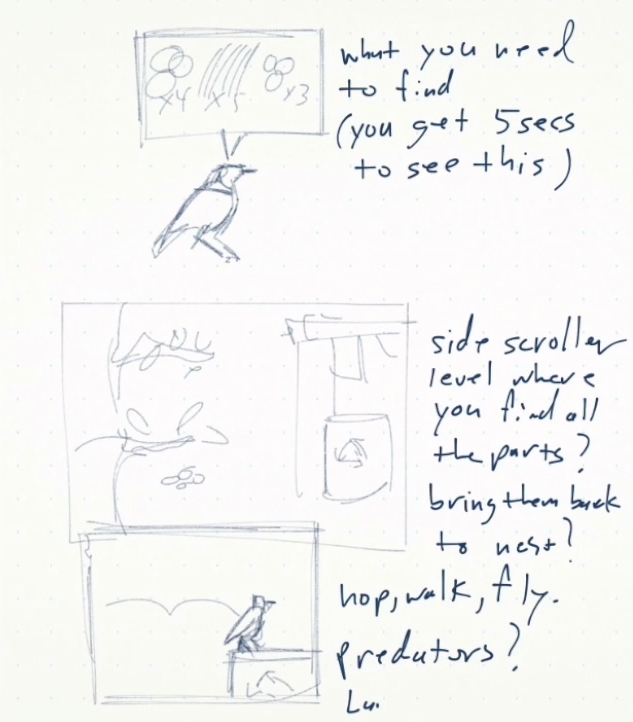 x4 x5 x3
what you need
to find
(you get 5secs
to see this)
side scroller
level where
you find all
the parts?
bring them back
to nest?
hop, walk, fly.
predators?